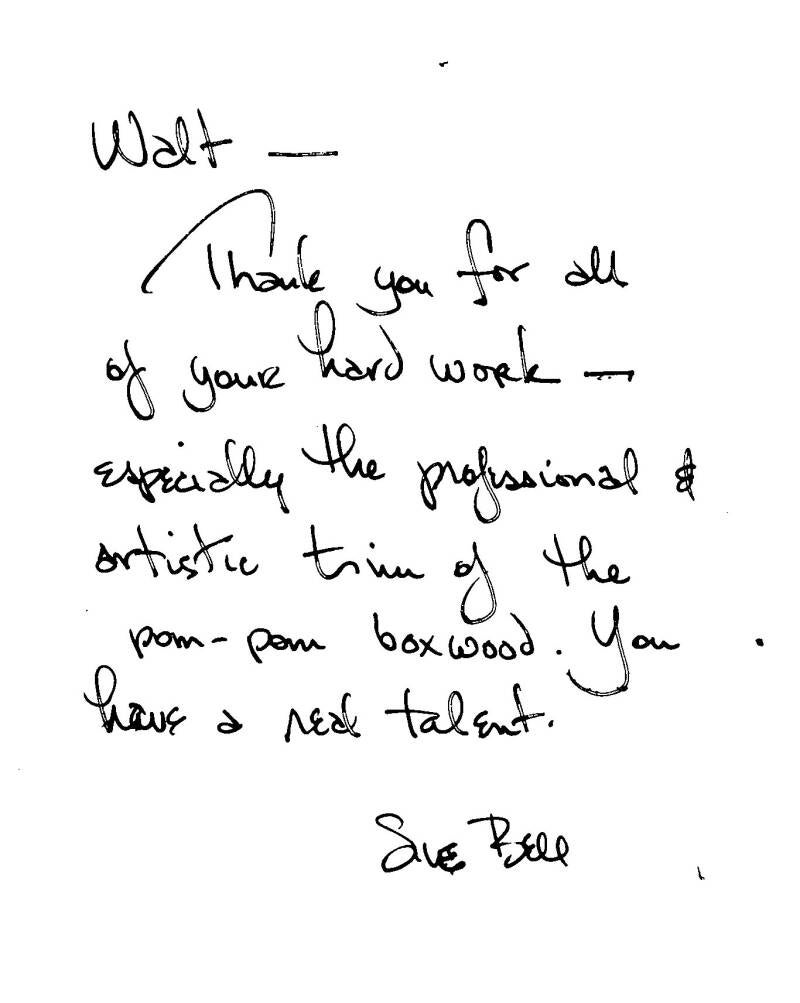 Walt —
Thank you for all
of your hard work —
especially the professional &
artistic trim of the
pom-pom boxwood. You
have a real talent.
Sue Bell